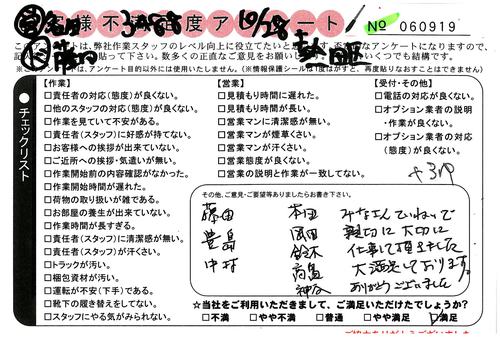 お客様不満足度アンケート
№ 060919
10/28
このアンケートは、弊社作業スタッフのレベル向上に役立てたいと
アンケートになりますので、
数多くの正直なご意見をお願い
いくつでも結構です。
アンケート目的以外には使用いたしません。(※情報保護シールは1度はがすと、再度貼りなおすことはできません)
チェックリスト
【作業】
□責任者の対応(態度)が良くない。
□他のスタッフの対応(態度)が良くない。
□作業を見ていて不安がある。
□責任者(スタッフ)に好感が持てない。
□お客様への挨拶が出来ていない。
□ご近所への挨拶・気遣いが無い。
□作業開始前の内容確認がなかった。
□作業開始時間が遅れた。
□荷物の取り扱いが雑である。
□お部屋の養生が出来ていない。
□作業時間が長すぎる。
□責任者(スタッフ)に清潔感が無い。
□責任者(スタッフ)が汗くさい。
□トラックが汚い。
□梱包資材が汚い。
□運転が不安(下手)である。
□靴下の履き替えをしてない。
□スタッフにやる気がみられない。
【営業】
□見積もり時間に遅れた。
□見積もり時間が長い。
□営業マンに清潔感が無い。
□営業マンが煙草くさい。
□営業マンが汗くさい。
□営業態度が良くない。
□営業の説明と作業が一致してない。
【受付・その他】
□電話の対応が良くない。
□オプション業者の説明・作業が良くない。
□オプション業者の対応(態度)が良くない。
その他、ご意見・ご要望等ありましたらお書き下さい。
藤田 本田 みなさんていねいで
豊島 岡田 親切に大切に
鈴木 仕事して頂きました
中村 高畠 大満足しております。
神谷 ありがとうございました
★当社をご利用いただきまして、ご満足いただけたでしょうか?
□不満 □やや不満 □普通 □やや満足 ☑満足